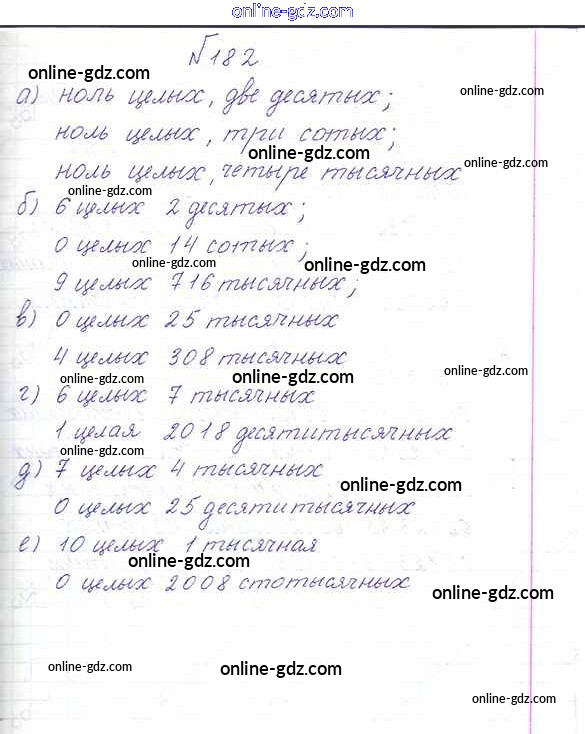 online-gdz.com
№182
online-gdz.com
online-gdz.com
а) ноль целых, две десятых;
ноль целых, три сотых;
online-gdz.com
online-gdz.com
ноль целых, четыре тысячных
online-gdz.com
б) 6 целых 2 десятых;
0 целых 14 сотых;
online-gdz.com
online-gdz.com
9 целых 716 тысячных;
в) 0 целых 25 тысячных
4 целых 308 тысячных
online-gdz.com
online-gdz.com
online-gdz.com
г) 6 целых 7 тысячных
1 целая 2018 десятитысячных
online-gdz.com
д) 7 целых 4 тысячных
online-gdz.com
0 целых 25 десятитысячных
е) 10 целых 1 тысячная
online-gdz.com
0 целых 2008 стотысячных
online-gdz.com
online-gdz.com
online-gdz.com
online-gdz.com